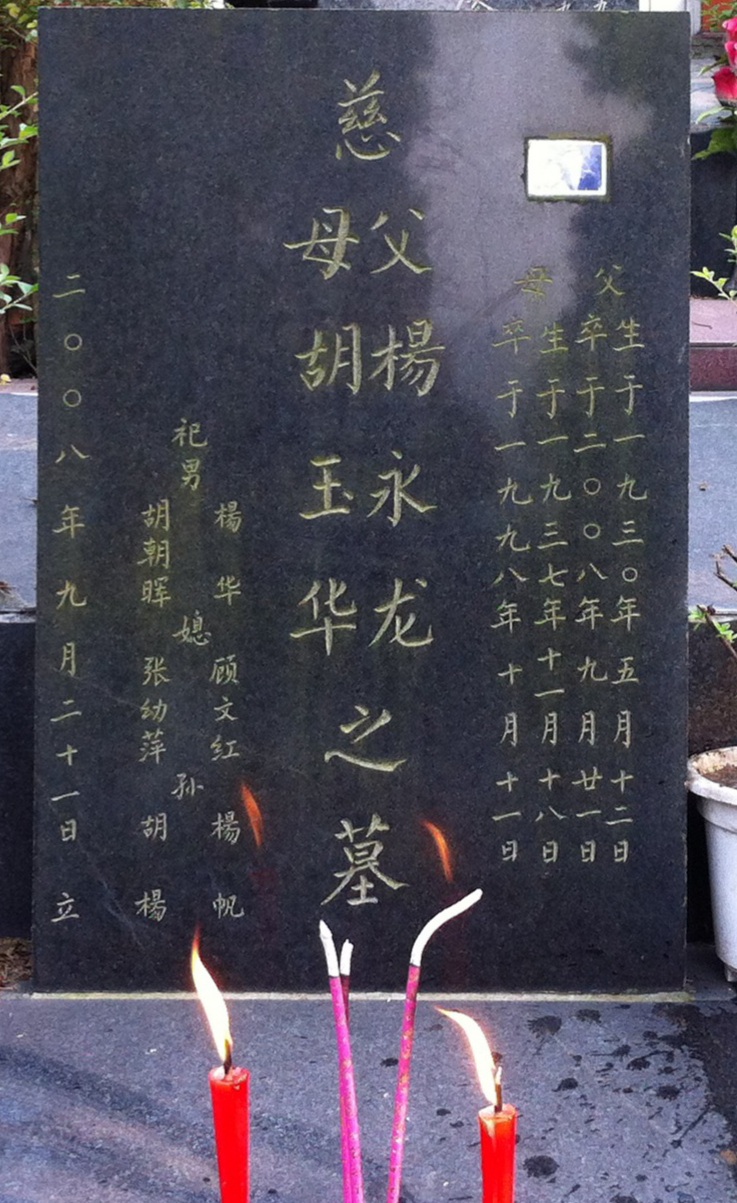 父
生于一九三〇年五月十二日
卒于二〇〇八年九月廿一日
母
生于一九三七年十一月十八日
卒于一九九八年十月十一日
慈
父楊永龙
母胡玉华
之墓
祀男
楊华
胡朝晖
媳
顾文红
张幼萍
孙
楊帆
胡楊
二〇〇八年九月二十一日 立